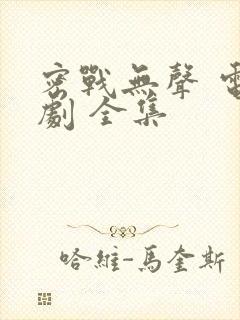 密戰無聲
劇 全集
哈維-馬奎斯